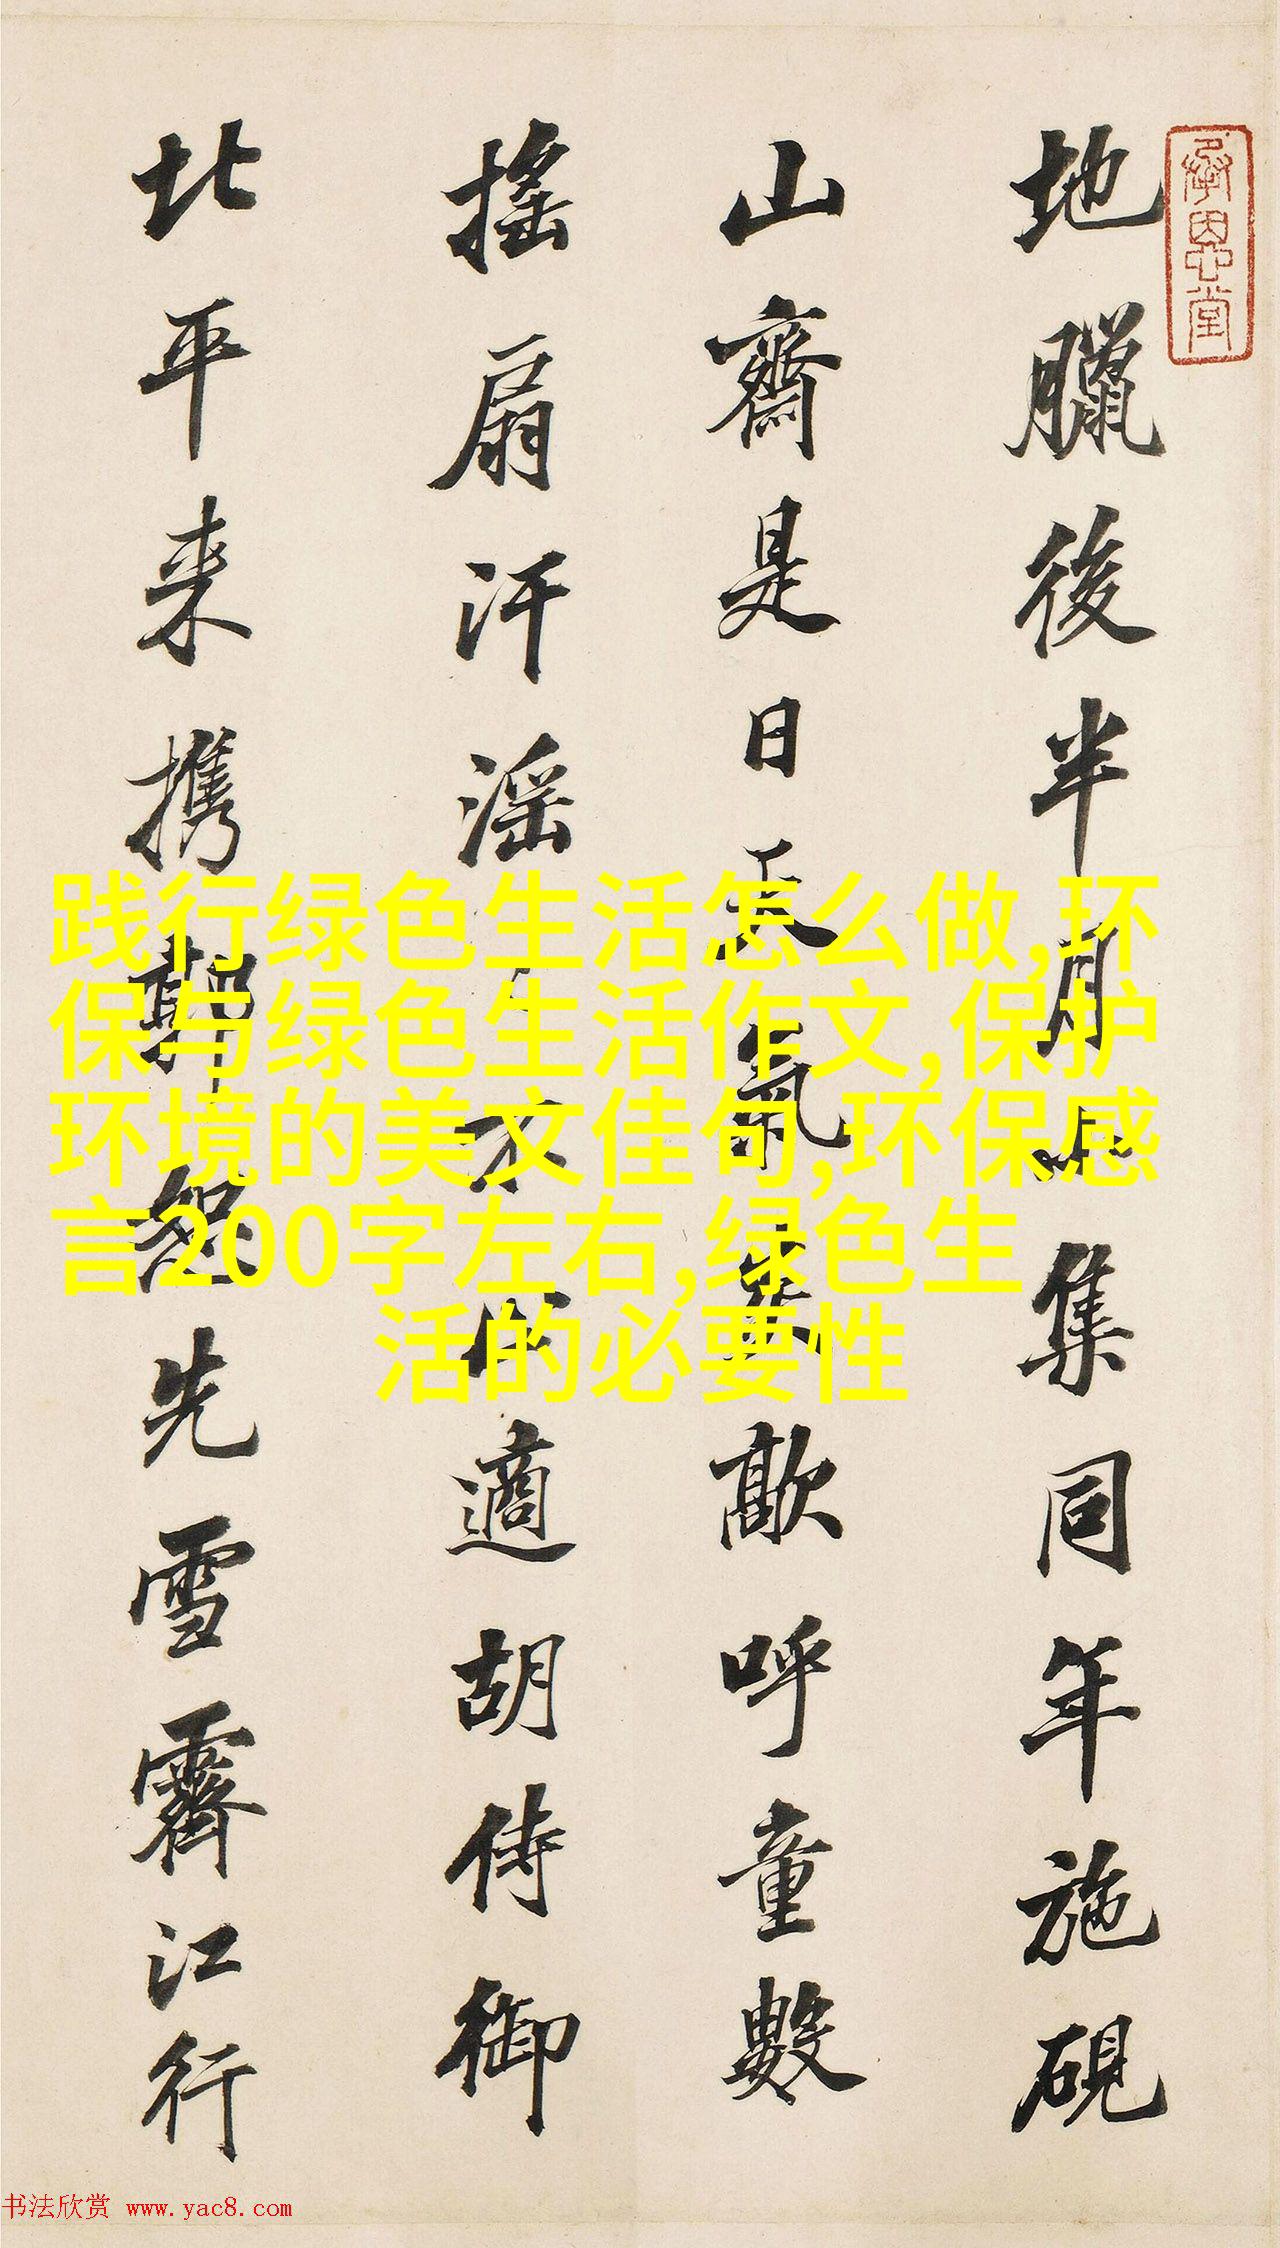 地臘後半月小集同年施硯
山齋是日天氣炎歊呼童數
搖扇汗滛滛不休適胡侍御
北平来攜郭恕先雪霽江行
承恩堂
践行绿色生活怎么做,环
保与绿色生活作文,保护
环境的美文佳句,环保感
言200字左右,绿色生
活的必要性
书法欣赏 www.yac8.com